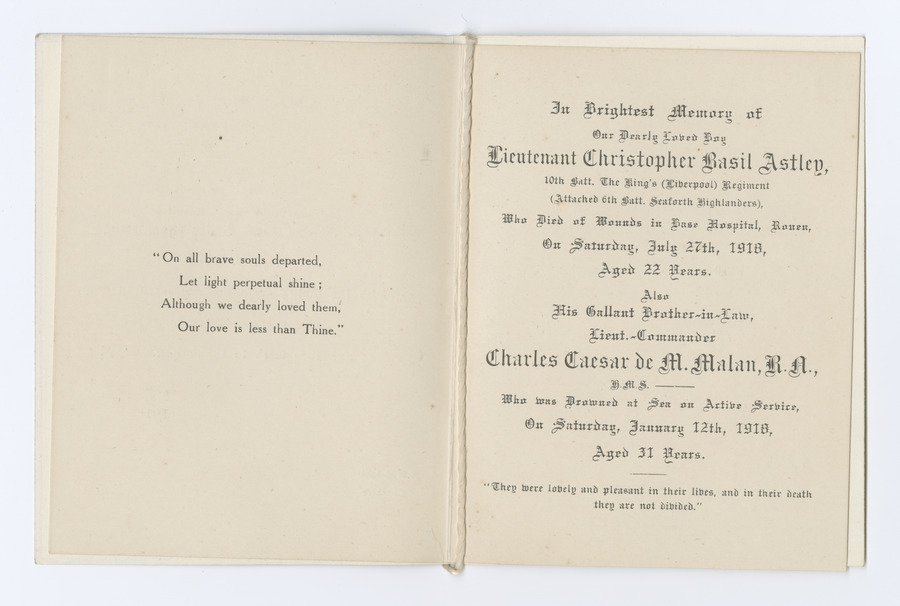 "On all brave souls departed,
Let light perpetual shine;
Although we dearly loved them,
Our love is less than Thine."
In Brightest Memory of
Our Dearly Loved Boy
Lieutenant Christopher Basil Astley,
10th Batt. The King's (Liverpool) Regiment
(Attached 6th Batt. Seaforth Highlanders),
Who Died of Wounds in Base Hospital, Rouen,
On Saturday, July 27th, 1918,
Aged 22 Years.
Also
His Gallant Brother-in-Law,
Lieut.-Commander
Charles Caesar de M. Malan, R.N.,
H.M.S. ———
Who was Drowned at Sea on Active Service,
On Saturday, January 12th, 1918,
Aged 31 Years.
"They were lovely and pleasant in their lives, and in their death
they are not divided."